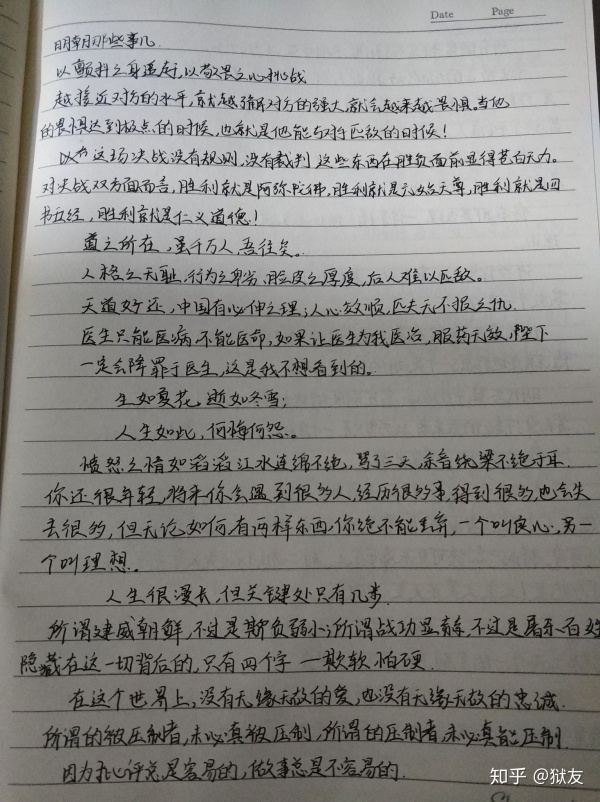 Date Page
明朝那些事儿
以颤抖之身追赶,以敬畏之心挑战
越接近对方的水平,就越了解对方的强大,就会越来越畏惧。当他
的畏惧达到极点的时候,也就是他能与对手匹敌的时候!
这场决战没有规则,没有裁判 这些东西在胜负面前显得苍白无力。
对决战双方面而言,胜利就是阿弥陀佛,胜利就是元始天尊,胜利就是四
书五经,胜利就是仁义道德!
道之所在,虽千万人,吾往矣。
人格之无耻,行为之卑劣,脸皮之厚度,后人难以匹敌。
天道好还,中国有必伸之理,人心效顺,匹夫无不报之仇
医生只能医病,不能医命,如果让医生为我医治,服药无效,陛下
一定会降罪于医生,这是我不想看到的。
生如夏花 逝如冬雪;
人生如此,何悔何怨。
愤怒之情如滔滔江水连绵不绝,骂了三天,余音绕梁不绝于耳.
你还很年轻,将来你会遇到很多人,经历很多事,得到很多,也会失
去很多,但无论如何,有两样东西,你绝不能丢弃,一个叫良心,另一
个叫理想。
人生很漫长,但关键处只有几步.
所谓建威朝鲜,不过是欺负弱小;所谓战功显赫,不过是屠杀百姓
隐藏在这一切背后的,只有四个字 — 欺软怕硬.
在这个世界上,没有无缘无故的爱,也没有无缘无故的忠诚.
所谓的被压制者,未必真被压制,所谓的压制者,未必真能压制.
因为批评总是容易的,做事总是不容易的.
知乎 @狱友